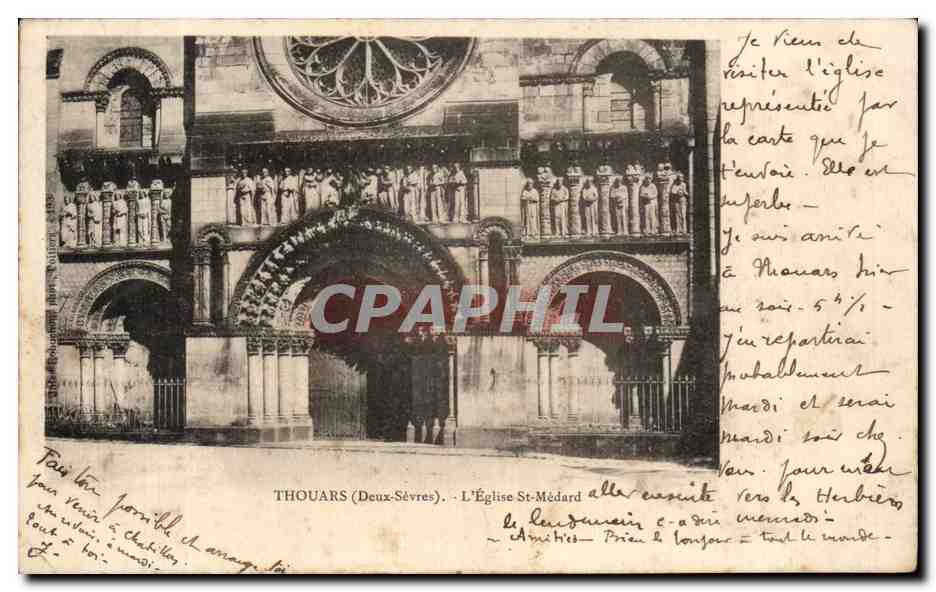 Je viens de
visiter l'église
représentée par
la carte que je
t'envoie. Elle est
superbe -
Je suis arrivé
à Thouars hier
au soir - 5h ½ -
J'en repartirai
probablement
mardi et serai
mardi soir chez
Vous. pour
THOUARS (Deux-Sèvres). - L'Église St-Médard
aller ensuite vers les Herbiers
le lendemain c-à-dire mercredi -
- Amitiés - Bien le bonjour à tout le monde -
Fais ton possible
pour venir à chatillon et arrange toi
Au revoir, à mardi -
tout à toi -
J -
CPAPHIL
.COM